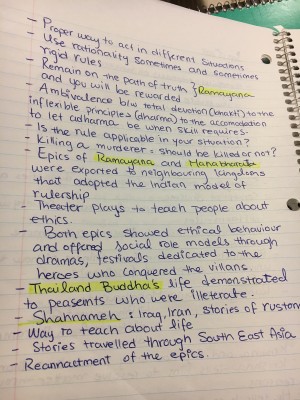 - Proper way to act in different situations
- Use rationality sometimes and sometimes
rigid rules
- Remain on the path of truth } Ramayana
and you will be rewarded
- Ambivalence b/w total devotion (bhakti) to the
inflexible principles (dharma) to the accomodation
to let adharma be when skill requires.
- Is the rule applicable in your situation?
Killing a murderer = should be killed or not?
- Epics of Ramayana and Mahabharata
were exported to neighbouring kingdoms
that adopted the Indian model of
rulership
- Theater plays to teach people about
ethics.
- Both epics showed ethical behaviour
and offered social role models through
dramas, festivals dedicated to the
heroes who conquered the villans.
- Thailand Buddha's life demonstrated
to peasents who were illeterate.
- Shahnameh : Iraq, Iran, stories of rustom
- Way to teach about life
- Stories travelled through South East Asia
- Reannactment of the epics.